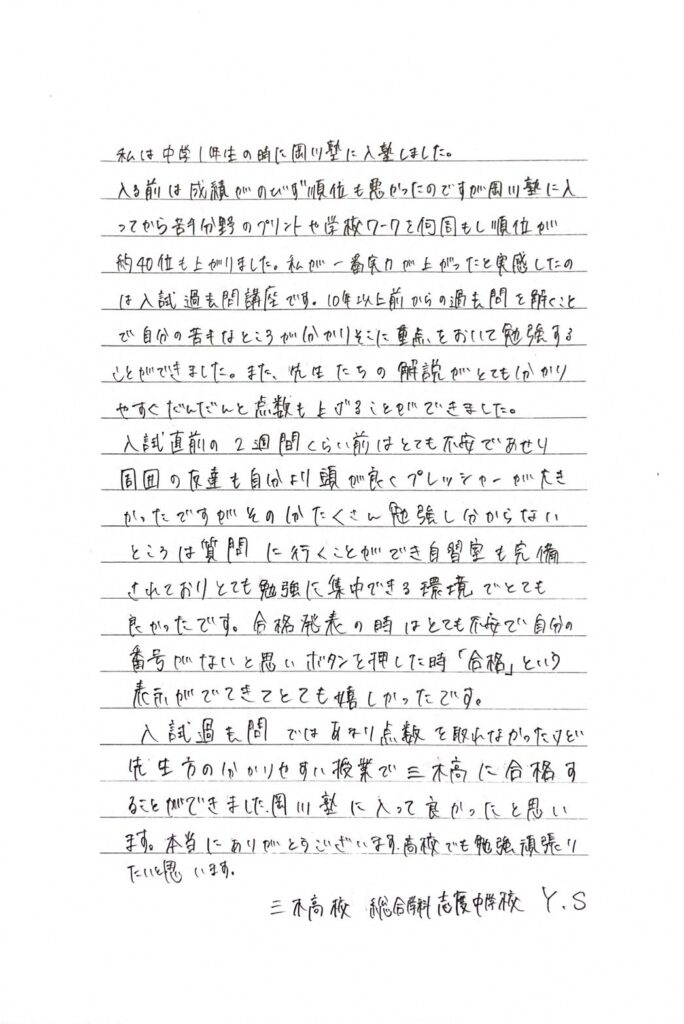 私は中学1年生の時に岡川塾に入塾しました。
入る前は成績がのびず順位も悪かったのですが岡川塾に入
ってから苦手分野のプリントや学校ワークを何周もし順位が
約40位も上がりました。私が一番実力が上がったと実感したの
は入試過去問講座です。10年以上前からの過去問を解くこと
で自分の苦手なところが分かりそこに重点をおいて勉強する
ことができました。また、先生たちの解説がとても分かり
やすくだんだんと点数も上げることができました。
入試直前の2週間くらい前はとても不安であせり
周囲の友達も自分より頭が良くプレッシャーが大き
かったですがその分たくさん勉強し分からない
ところは質問に行くことができ自習室も完備
されておりとても勉強に集中できる環境でとても
良かったです。合格発表の時はとても不安で自分の
番号がないと思いボタンを押した時「合格」という
表示がでてきてとても嬉しかったです。
入試過去問ではあまり点数を取れなかったけど
先生方の分かりやすい授業で三木高に合格す
ることができました。岡川塾に入って良かったと思い
ます。本当にありがとうございます。高校でも勉強頑張り
たいと思います。
三木高校 総合学科 志度中学校 Y.S